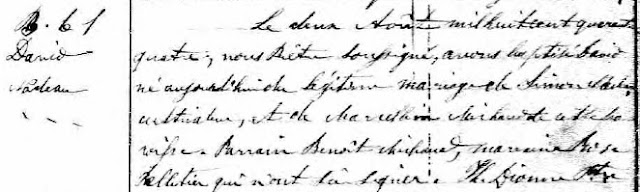 B. 61
David
Nadeau
Le deux Août mil huit cent quarante
quatre, nous Prêtre soussigné, avons baptisé David
né aujourd'hui du légitime mariage de Simon Nadeau
cultivateur, et de Marcelline Michaud de cette pa
roisse. Parrain Benoît Michaud, marraine Rose
Pelletier qui n'ont su signer. Th. Dionne Ptre